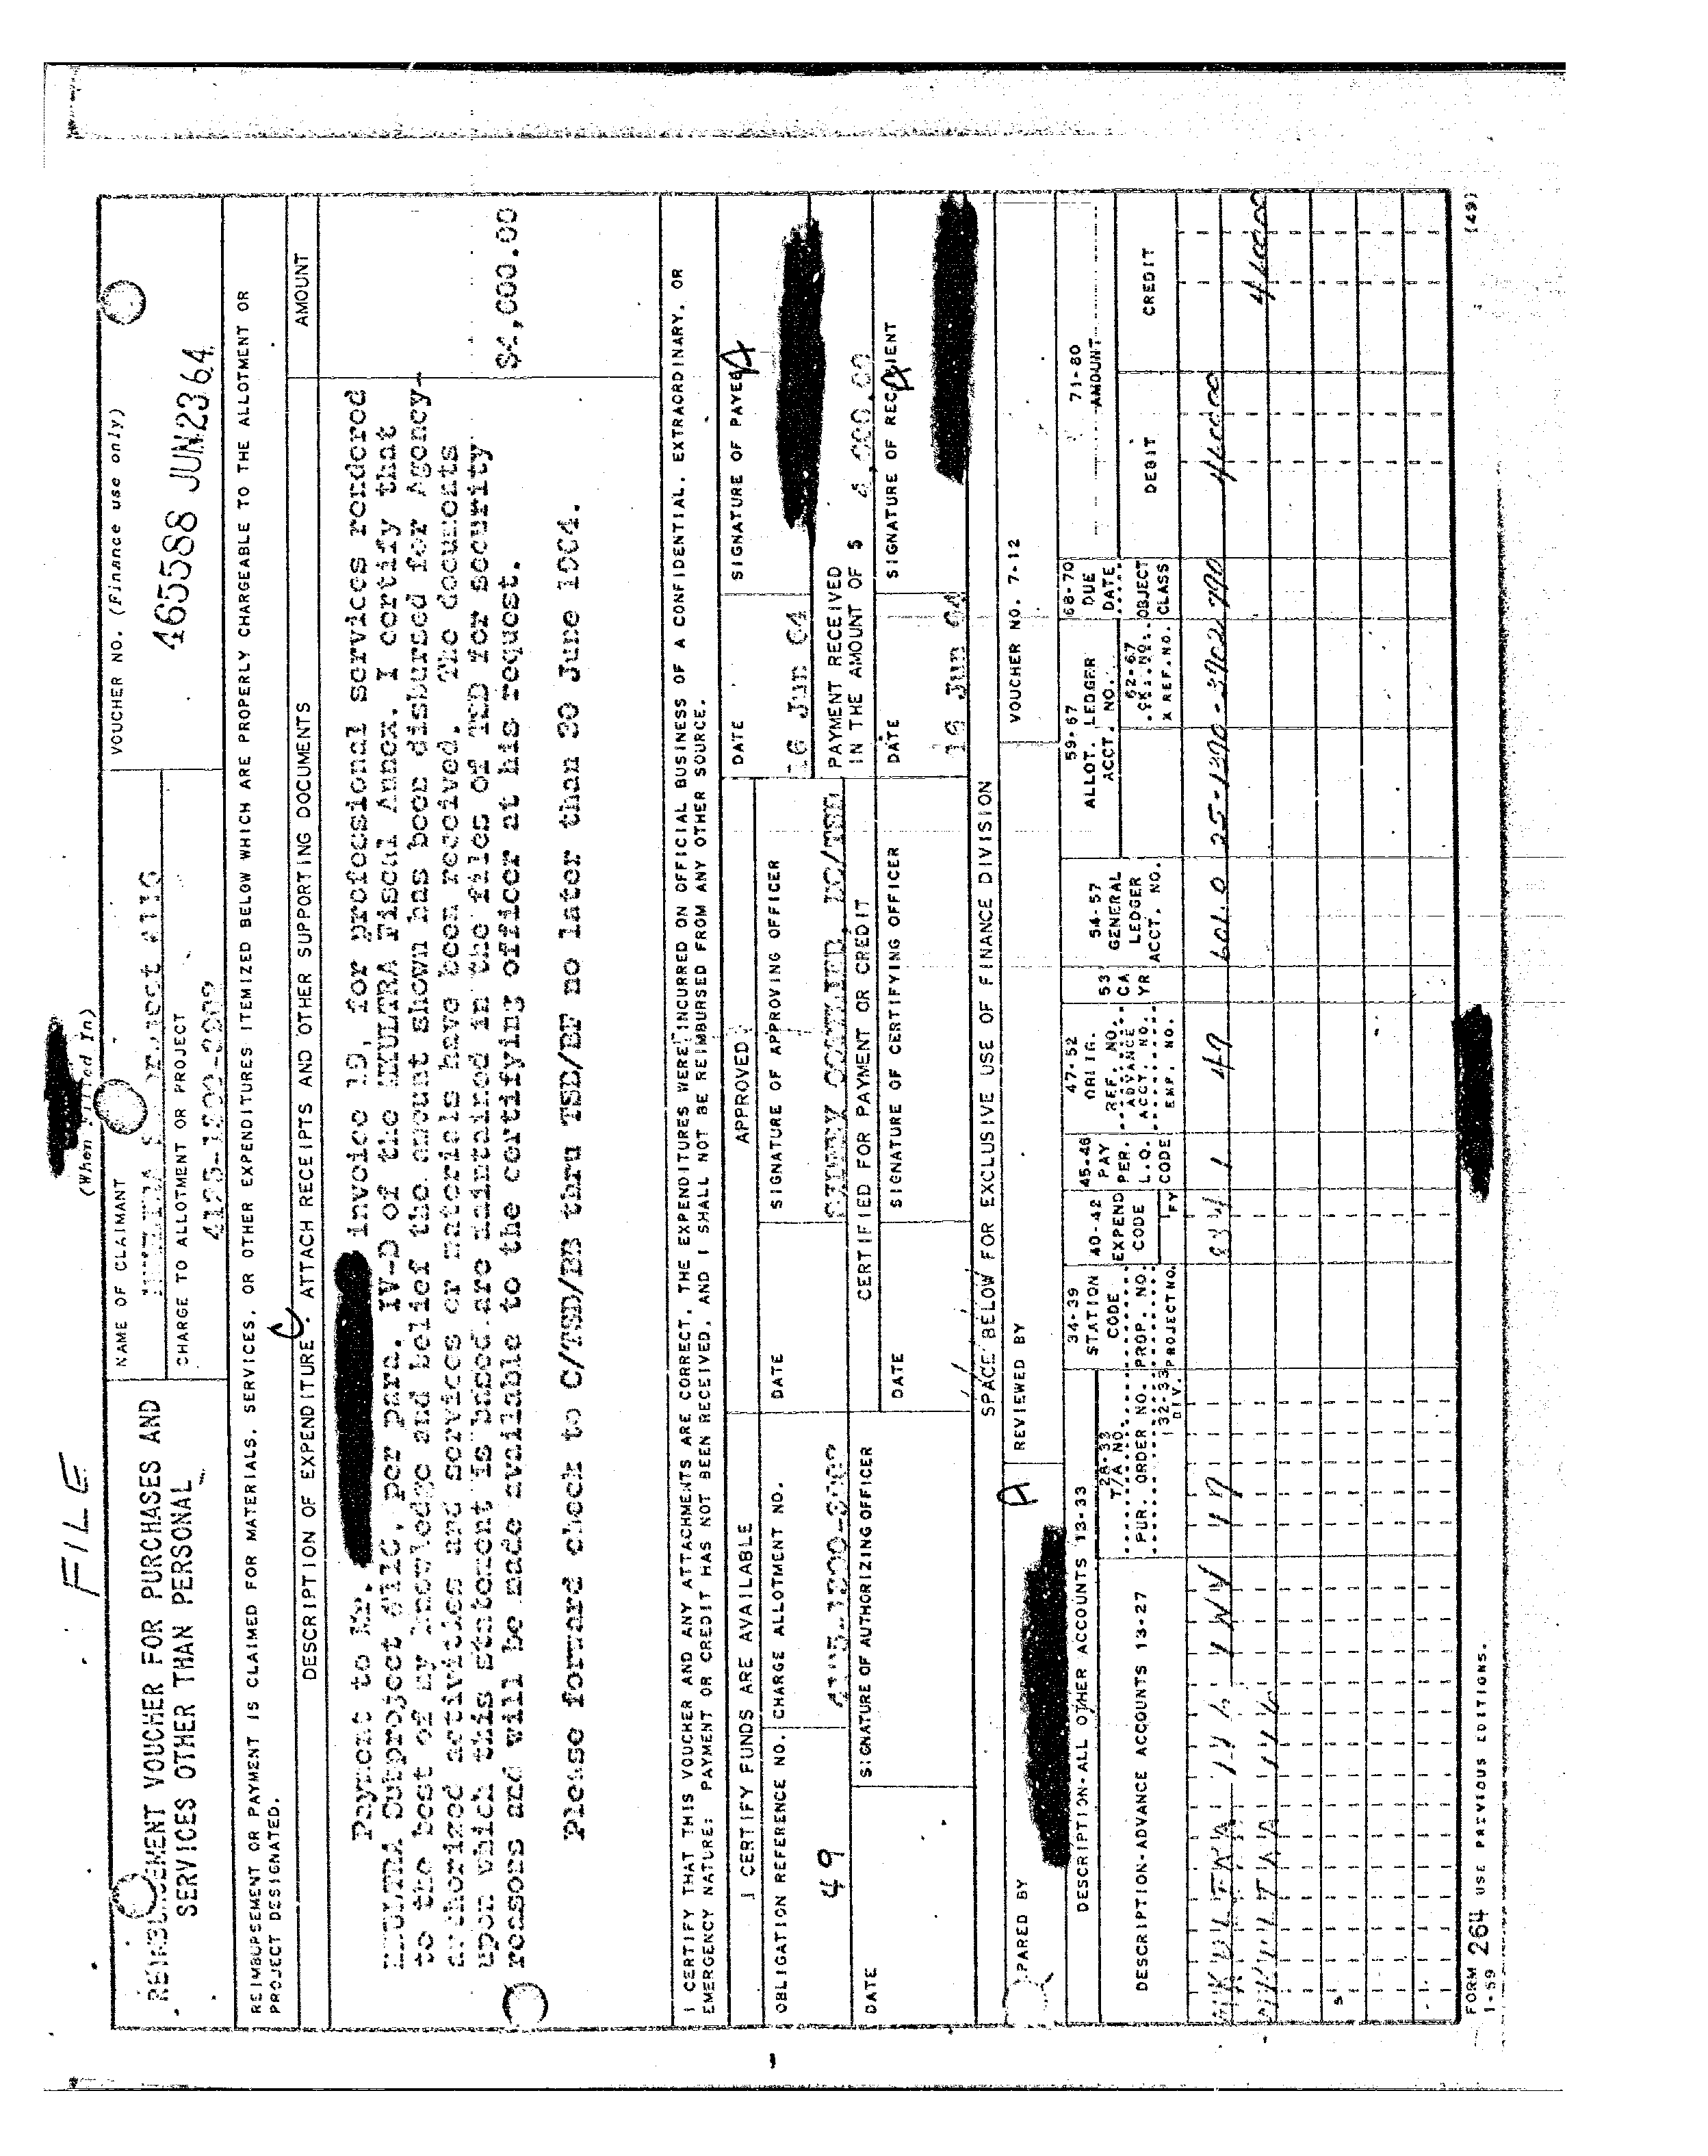 FILE
(When Filled In)
REIMBURSEMENT VOUCHER FOR PURCHASES AND
SERVICES OTHER THAN PERSONAL
NAME OF CLAIMANT
CHARGE TO ALLOTMENT OR PROJECT
VOUCHER NO. (Finance use only)
465588 JUN 23 64
REIMBURSEMENT OR PAYMENT IS CLAIMED FOR MATERIALS, SERVICES, OR OTHER EXPENDITURES ITEMIZED BELOW WHICH ARE PROPERLY CHARGEABLE TO THE ALLOTMENT OR
PROJECT DESIGNATED.
DESCRIPTION OF EXPENDITURE. ATTACH RECEIPTS AND OTHER SUPPORTING DOCUMENTS
AMOUNT
Payment to Mr. Invoice 19, for professional services rendered
MKULTRA Subproject per para. IV-D of the MKULTRA Fiscal Annex. I certify that
to the best of my knowledge and belief the amount shown has been disbursed for Agency
authorized activities and services or materials have been received. The documents
upon which this statement is based are maintained in the files of TSD for security
reasons and will be made available to the certifying officer at his request.
$4,000.00
Please forward check to C/TSD/BB thru TSD/BF no later than 30 June 1964.
I CERTIFY THAT THIS VOUCHER AND ANY ATTACHMENTS ARE CORRECT, THE EXPENDITURES WERE INCURRED ON OFFICIAL BUSINESS OF A CONFIDENTIAL, EXTRAORDINARY, OR
EMERGENCY NATURE; PAYMENT OR CREDIT HAS NOT BEEN RECEIVED, AND I SHALL NOT BE REIMBURSED FROM ANY OTHER SOURCE.
I CERTIFY FUNDS ARE AVAILABLE
APPROVED
DATE
SIGNATURE OF PAYEE
A
OBLIGATION REFERENCE NO.
49
CHARGE ALLOTMENT NO.
DATE
SIGNATURE OF APPROVING OFFICER
SIDNEY GOTTLIEB, DC/TSD
16 Jun 64
CERTIFIED FOR PAYMENT OR CREDIT
PAYMENT RECEIVED
IN THE AMOUNT OF $ 4,000.00
DATE
SIGNATURE OF AUTHORIZING OFFICER
DATE
SIGNATURE OF CERTIFYING OFFICER
DATE
16 Jun 64
SIGNATURE OF RECIPIENT
A
SPACE BELOW FOR EXCLUSIVE USE OF FINANCE DIVISION
PREPARED BY
A
REVIEWED BY
VOUCHER NO. 7-12
DESCRIPTION-ALL OTHER ACCOUNTS 13-33
DESCRIPTION-ADVANCE ACCOUNTS 13-27
28-33
T/A NO.
PUR. ORDER NO.
32-33
DIV.
34-39
STATION
CODE
PROP. NO.
PROJECT NO.
40-42
EXPEND
CODE
FY
45-46
PAY
PER.
L.Q.
CODE
47-52
ORIG.
REF. NO.
ADVANCE
ACCT. NO.
EMP. NO.
53
CA
YR
54-57
GENERAL
LEDGER
ACCT. NO.
59-67
ALLOT. LEDGER
ACCT. NO.
62-67
X REF. NO.
68-70
DUE
DATE
OBJECT
CLASS
71-80
AMOUNT
DEBIT
CREDIT
49
601.0
400000
400000
FORM 264 USE PREVIOUS EDITIONS.
1-59
(49)